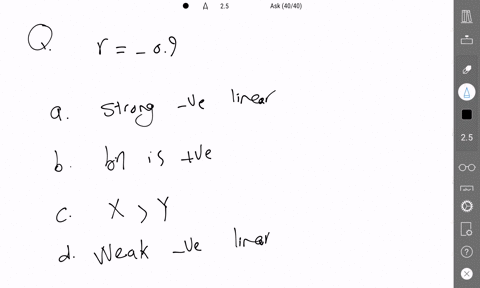 2.5 Ask (40/40)
Q. r = - 0.9
a. strong -ve linear
b. bn is +ve
c. X > Y
d. Weak -ve linear
2.5